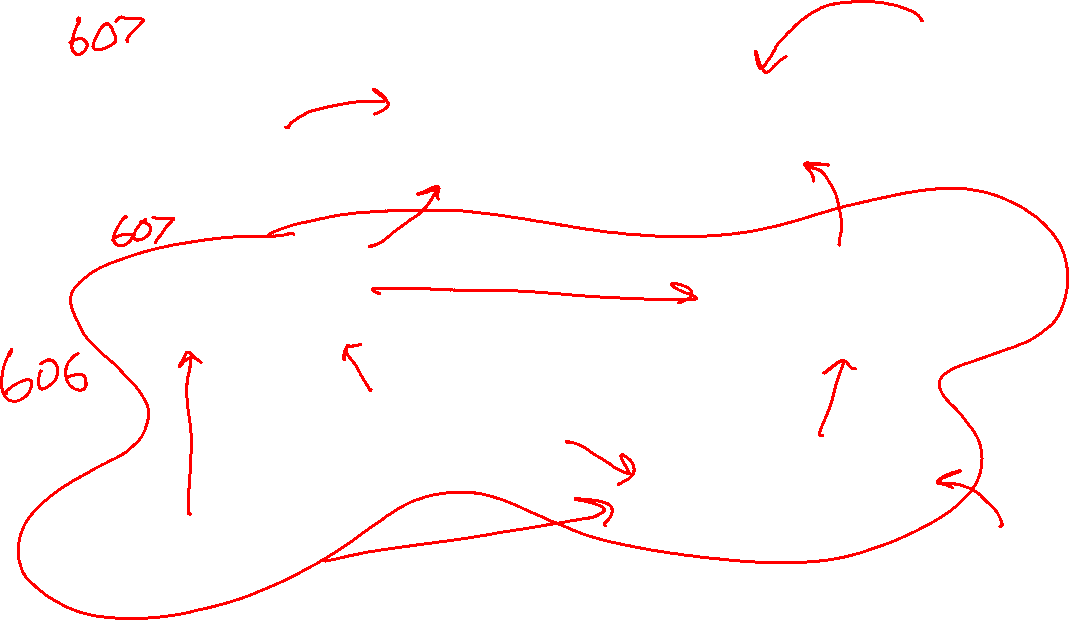 607
607
606